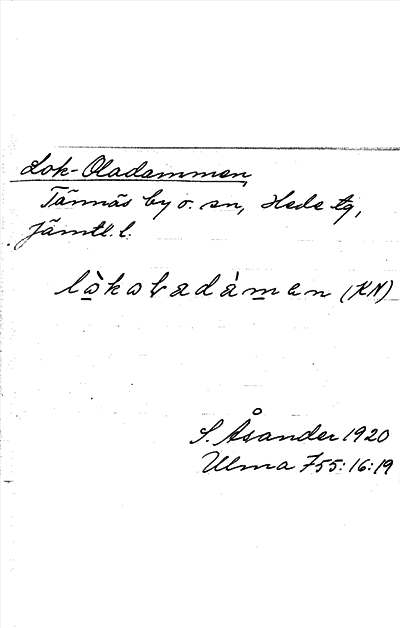 Lok-Oladammen
Tännäs by o. sn, Hede tg,
Jämtl. l.
(KN)
S. Åsander 1920
Ulma 755:16:19